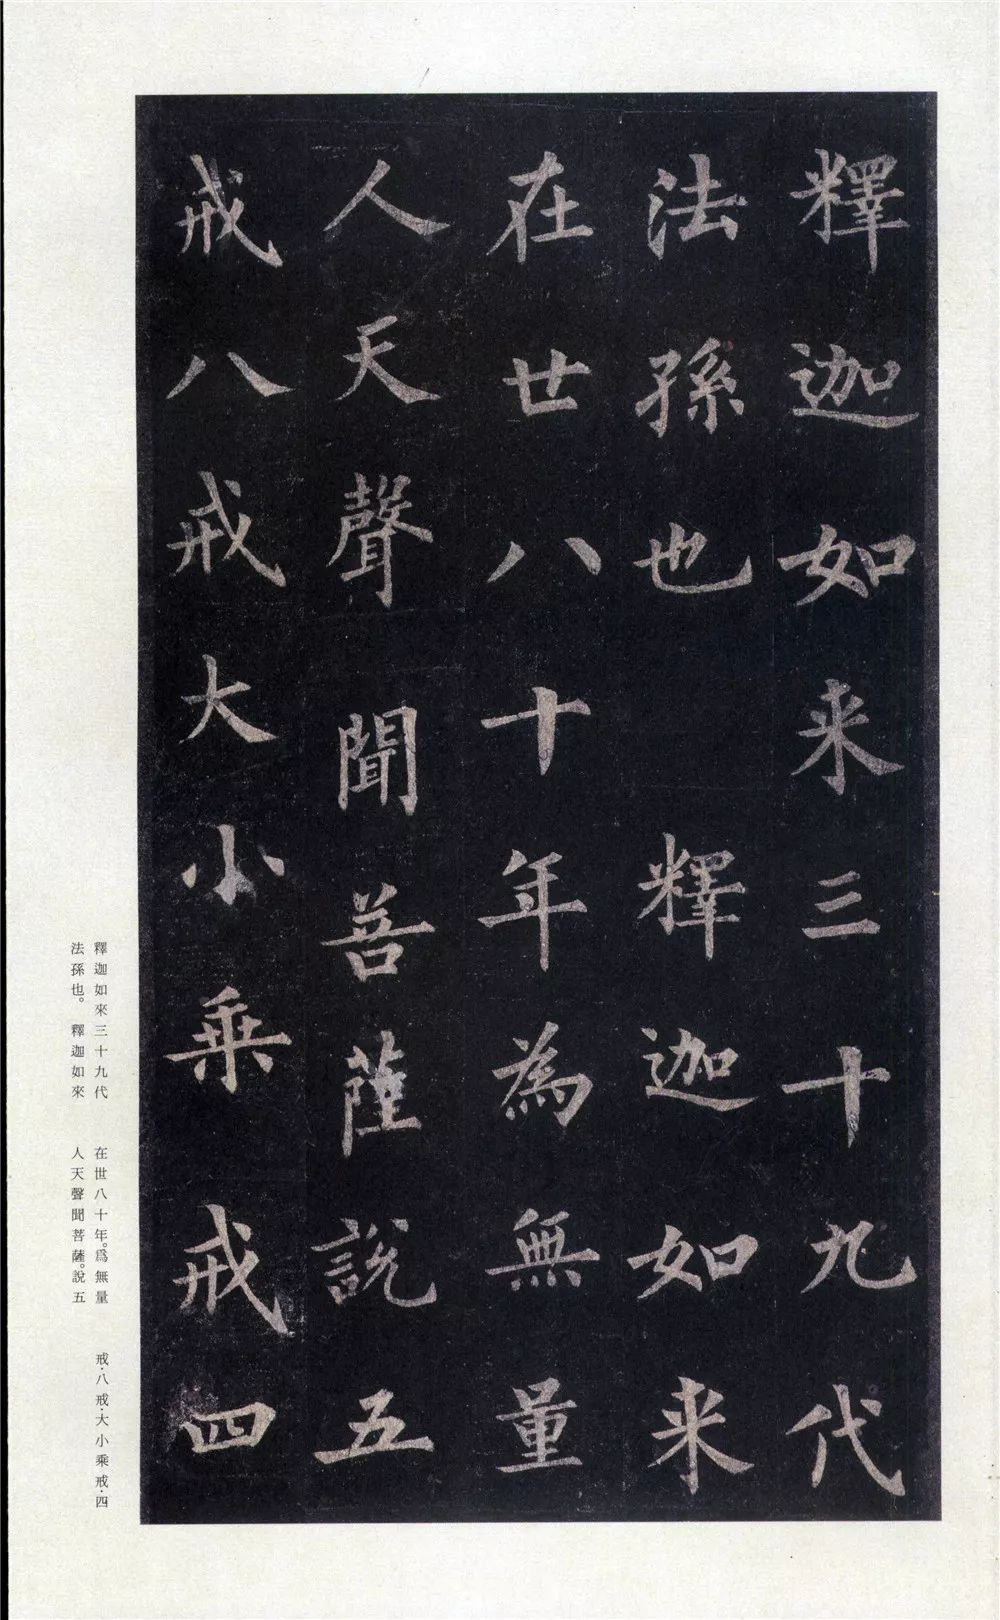 釋迦如来三十九代
法孫也釋迦如来
在世八十年為無量
人天聲聞菩薩説五
戒八戒大小乘戒四
釋迦如來三十九代
法孫也。釋迦如來
在世八十年。爲無量
人天聲聞菩薩。説五
戒·八戒·大小乘戒·四